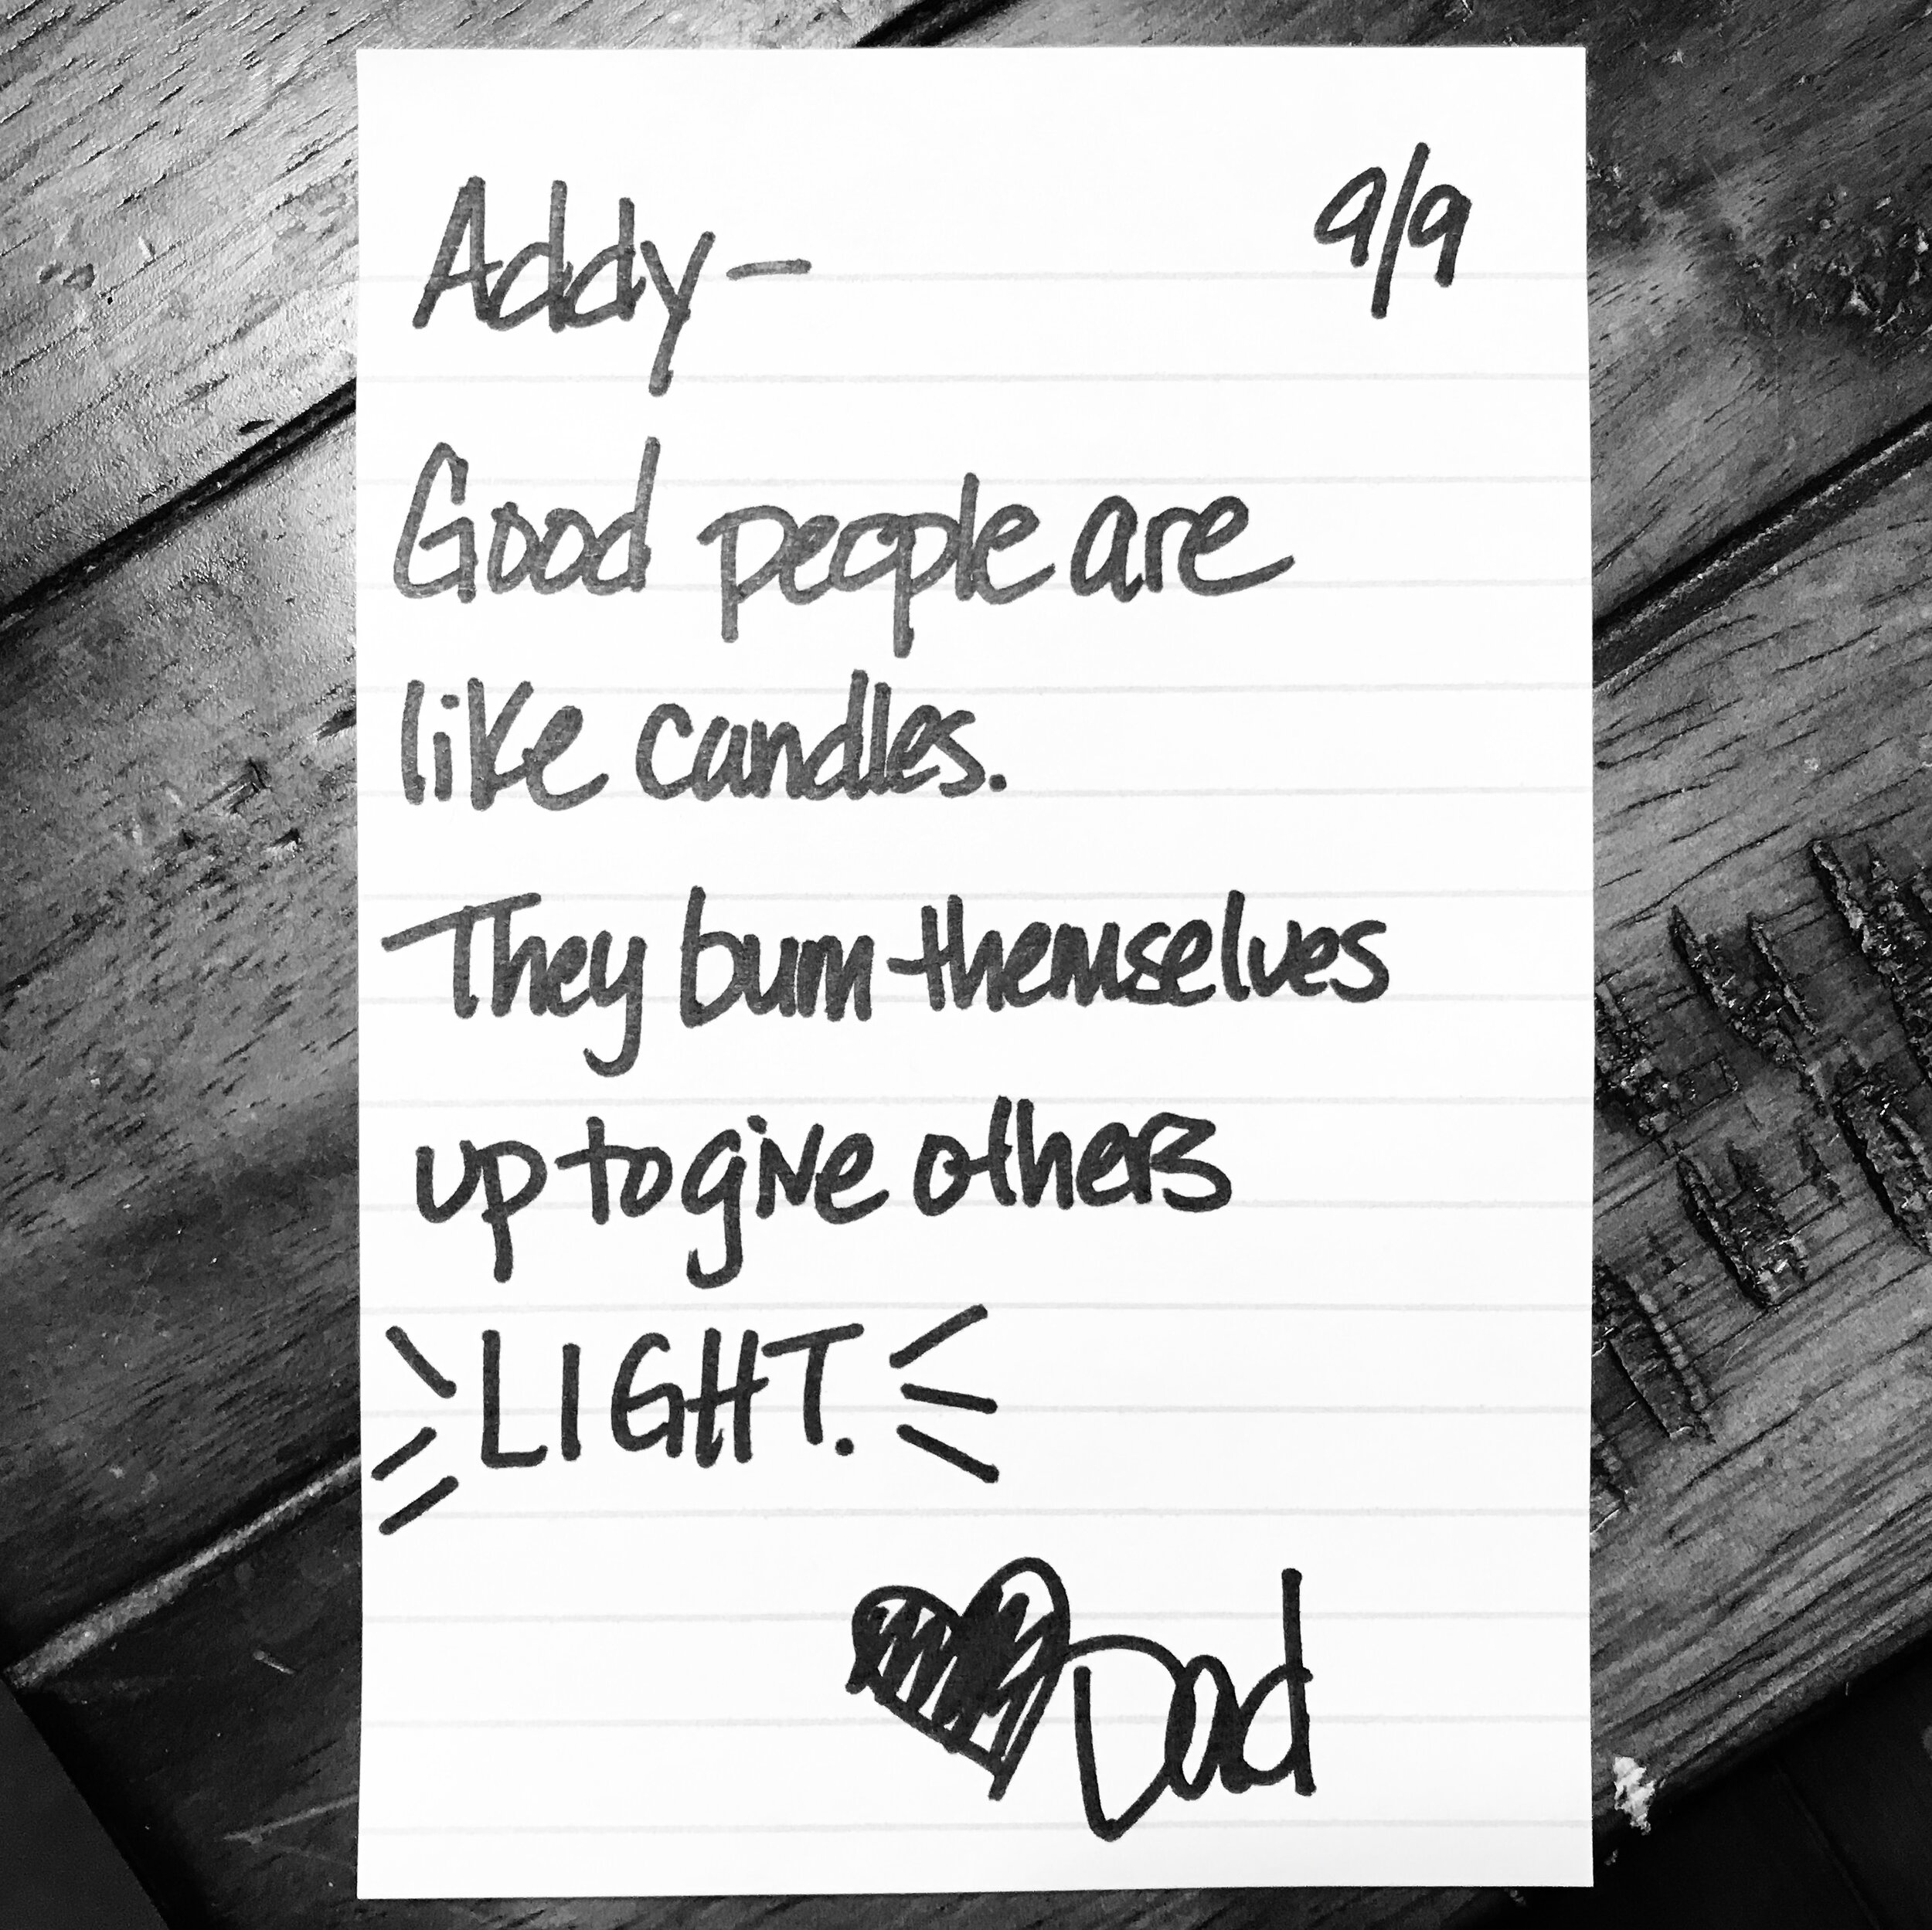 Addy- 9/9
Good people are
like candles.
They burn themselves
up to give others
LIGHT.
Dad